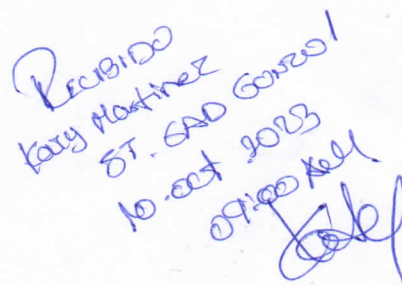 RECIBIDO
Katy Martinez
ST. GAD GONZOL
10.oct.2023
09:00 AM.